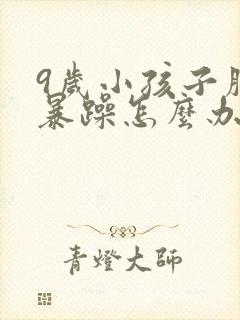 9歲小孩子
暴躁怎麼办
青燈大師